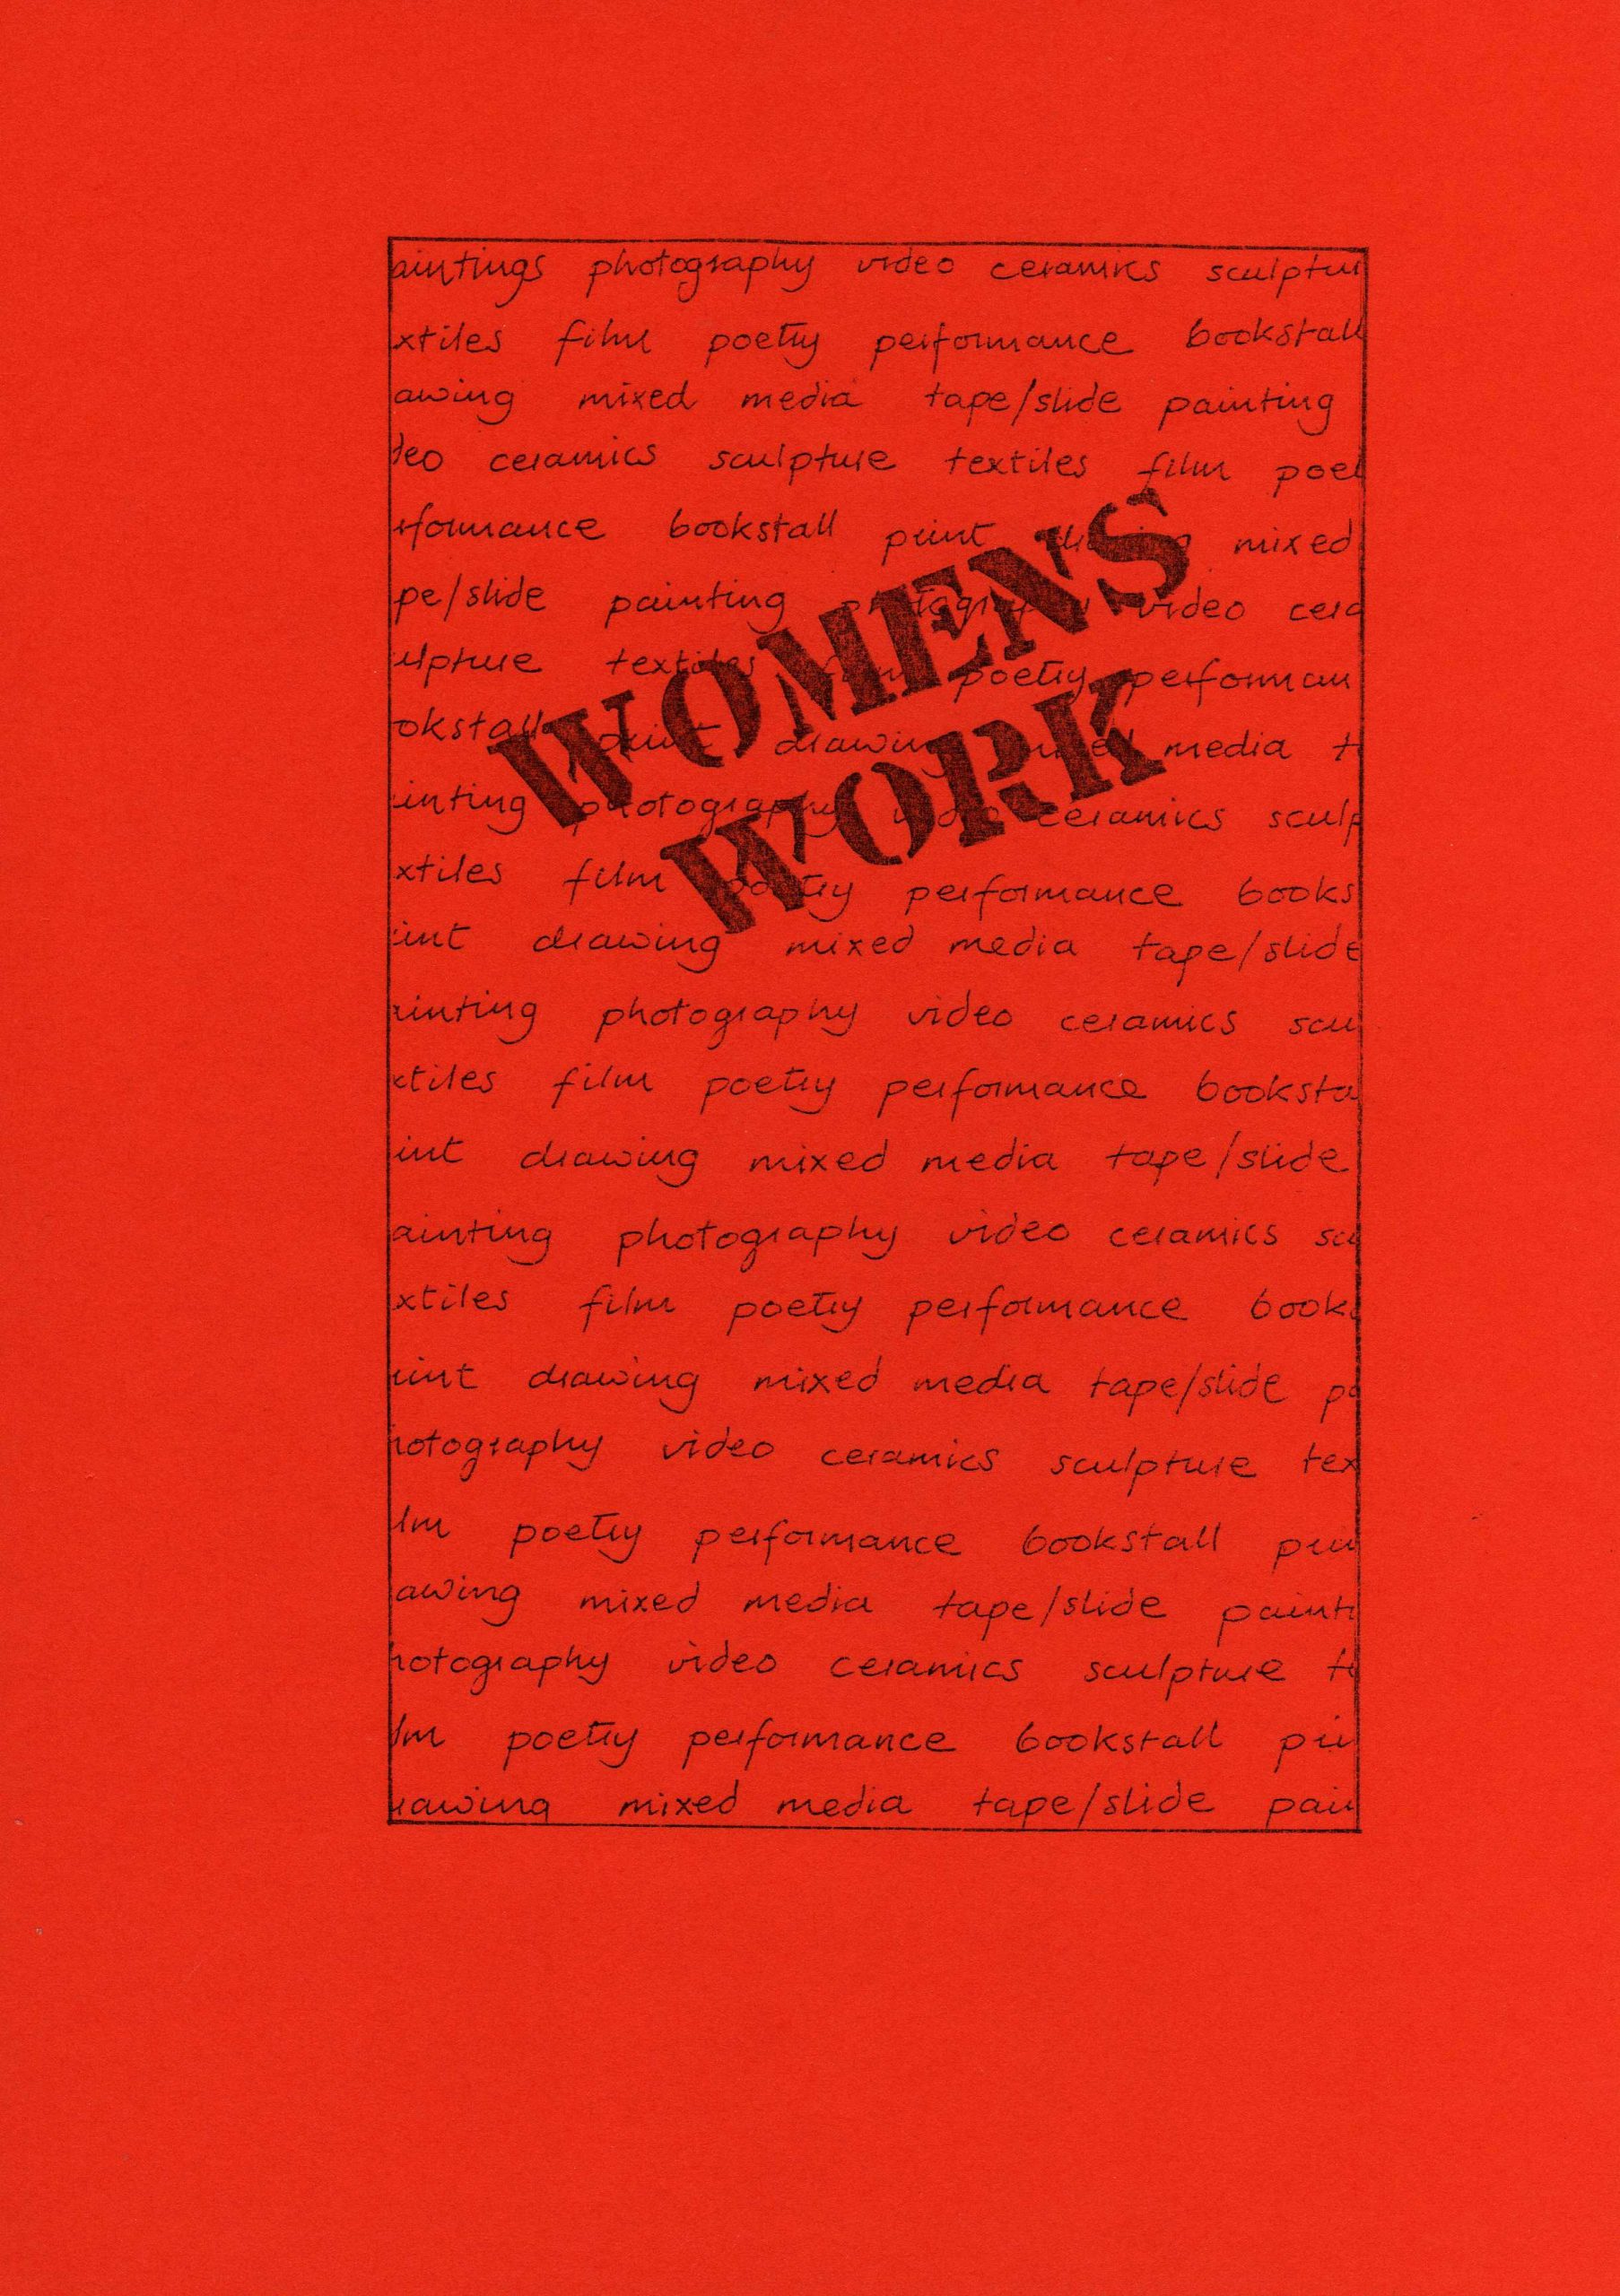 aintings photography video ceramics sculptur
xtiles film poetry performance bookstall
awing mixed media tape/slide painting
deo ceramics sculpture textiles film poet
rformance bookstall print drawing mixed
pe/slide painting photography video cera
ulpture textiles film poetry performan
okstall print drawing mixed media t
WOMENS
WORK
inting photography video ceramics sculp
xtiles film poetry performance books
int drawing mixed media tape/slide
ainting photography video ceramics scu
xtiles film poetry performance booksta
int drawing mixed media tape/slide
ainting photography video ceramics scu
xtiles film poetry performance books
rint drawing mixed media tape/slide pa
hotography video ceramics sculpture tex
lm poetry performance bookstall prin
awing mixed media tape/slide painti
hotography video ceramics sculpture te
lm poetry performance bookstall pri
rawing mixed media tape/slide pain